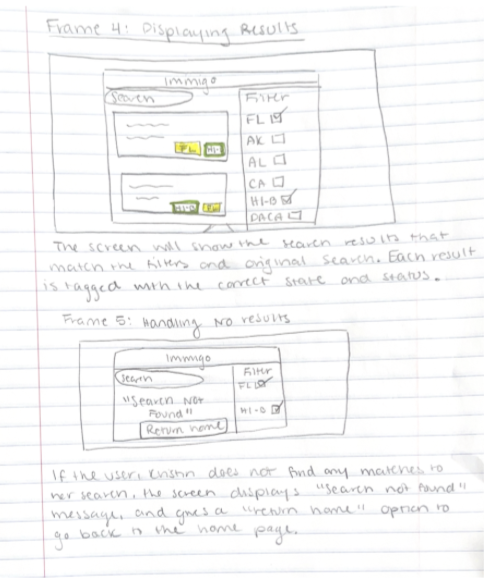 Frame 4: Displaying Results
Immigo
Search
Filter
FL
AK
AL
CA
H1-B
DACA
FL
The screen will show the search results that
match the filters and original search. Each result
is tagged with the correct state and status.
Frame 5: Handling No results
Immigo
Search
Filter
FL
"Search Not
Found"
H1-B
Return home
If the user, Kristin does not find any matches to
her search, the screen displays "search not found"
message, and gives a "return home" option to
go back to the home page.